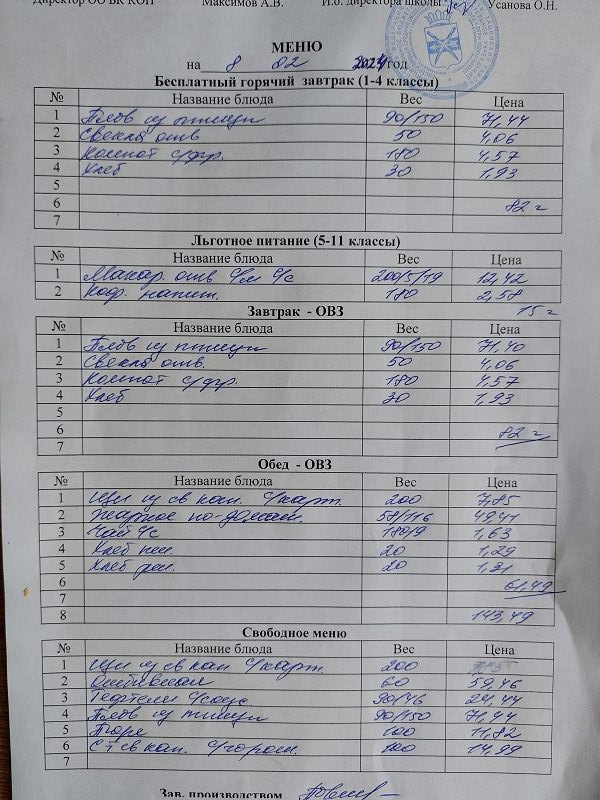 Директор ОО ВК КОП Максимов А.В. И.о. директора школы Усанова О.Н.
МЕНЮ
на 8 02 2024 год
Бесплатный горячий завтрак (1-4 классы)
№ Название блюда Вес Цена
1 Плов из птицы 90/150 71,44
2 Свекла отв 50 4,06
3 Компот с/фр. 180 4,57
4 Хлеб 30 1,93
5
6 82 =
7
Льготное питание (5-11 классы)
№ Название блюда Вес Цена
1 Макар. отв с/м с/с 200/5/19 12,42
2 Коф. напит. 180 2,58
15 =
Завтрак - ОВЗ
№ Название блюда Вес Цена
1 Плов из птицы 90/150 71,40
2 Свекла отв. 50 4,06
3 Компот с/фр. 180 4,57
4 Хлеб 30 1,93
5
6 82 =
7
Обед - ОВЗ
№ Название блюда Вес Цена
1 Щи из св кап. с/карт. 200 7,85
2 Жаркое по-домаш. 58/116 49,41
3 Чай с/с 180/9 1,63
4 Хлеб пш. 20 1,29
5 Хлеб рж. 20 1,31
6 61,49
7
8 143,49
Свободное меню
№ Название блюда Вес Цена
1 Щи из св кап с/карт. 200
2 Отбивная 60 59,46
3 Тефтели с/соус. 90/46 24,44
4 Плов из птицы 90/150 71,44
5 Пюре 100 11,82
6 С т св кап. с/горош. 100 14,99
7
Зав. производством